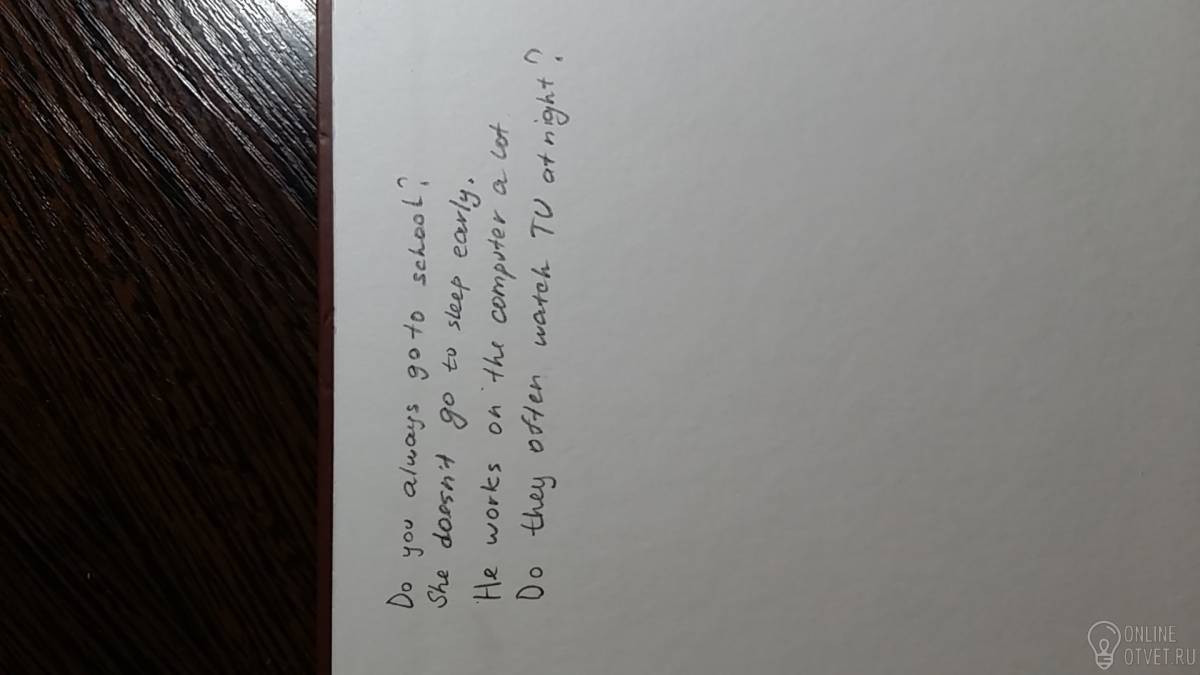 Do you always go to school?
She doesn't go to sleep early.
He works on the computer a lot
Do they often watch TV at night?
ONLINE
OTVET.RU